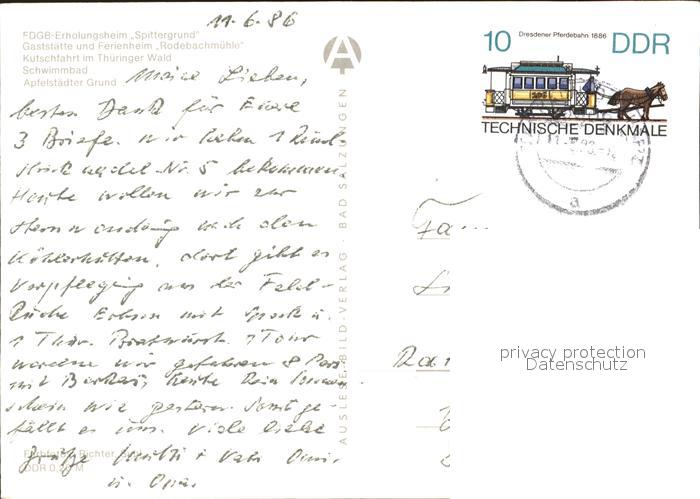 11.6.86
FDGB-Erholungsheim „Spittergrund"
Gaststätte und Ferienheim „Rodebachmühle"
Kutschfahrt im Thüringer Wald
Schwimmbad
Apfelstädter Grund
Meine Lieben,
besten Dank für Euere
3 Briefe. wir haben 1 Rund-
Nr. 5 bekommen.
Heute wollen wir zur
Sternwanderung nach den
Köhlerhütten, dort gibt es
Verpflegung aus der Feld-
küche Erbsen mit Speck u.
1 Thür. Bratwurst. 1 Tour
werden wir gefahren 8 Pers.
mit Barkas, heute kein Sonnen
schein wie gestern. Sonst ge-
fällt es uns. Viele liebe
Grüße Mutti + Vati Omi.
u. Opa.
Richter,
DDR 0,
M
AUSLESE-BILD-VERLAG · BAD SALZUNGEN
10
Dresdener Pferdebahn 1886
DDR
TECHNISCHE DENKMALE
a
Fa
privacy protection
Datenschutz